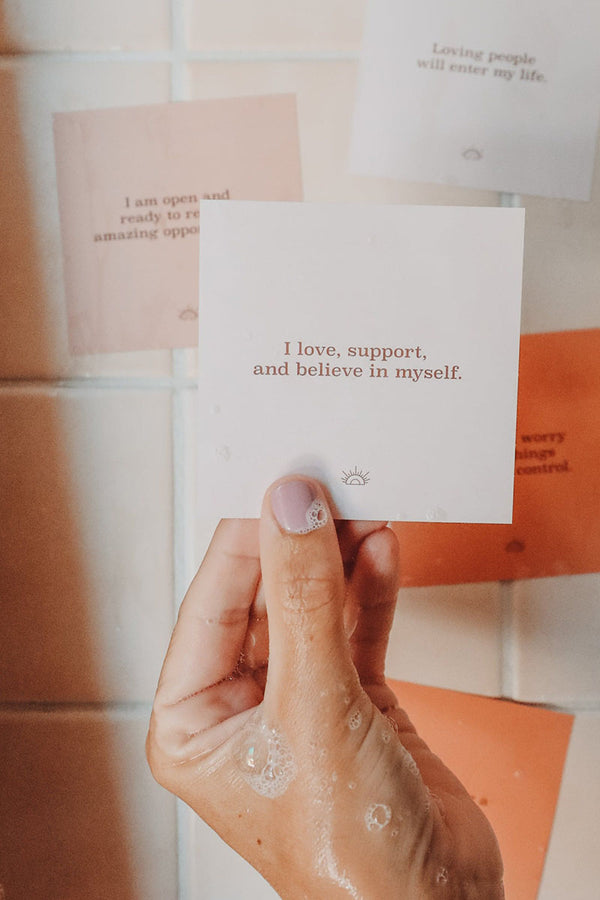 Loving people
will enter my life.
I am open and
ready to re
amazing oppo
I love, support,
and believe in myself.
worry
hings
control.